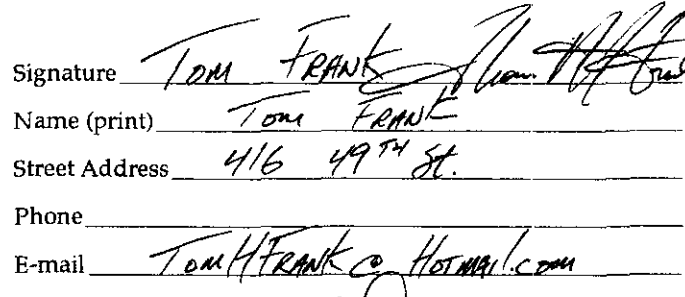 Signature Tom Frank
Name (print) Tom Frank
Street Address 416 49TH St.
Phone
E-mail TomHFrank@Hotmail.com